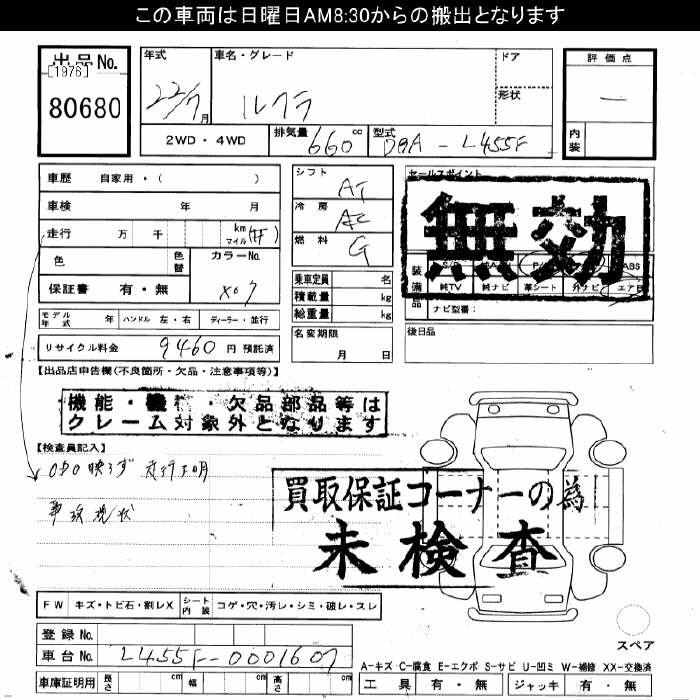 この車両は日曜日AM8:30からの搬出となります
出品No.
[1976]
80680
年式 22/7 月
車名・グレード ルクラ
ドア
形状
評価点
ー
内装
2WD・4WD 排気量 660 cc 型式 DBA-L455F
車歴 自家用・( )
車検 年 月
走行 万 千 km マイル
色 色替 カラーNo.
X07
保証書 有・無
モデル年式 年 ハンドル 左・右 ディーラー・並行
リサイクル料金 9460 円 預託済
シフト AT
冷房 AC
燃料 G
乗車定員 名
積載量 kg
総重量 kg
名変期限
月 日
セールスポイント
無効
装備品
ABS
純TV 純ナビ 革シート 外ナビ エアB
ナビ型番:
後日品
【出品店申告欄(不良箇所・欠品・注意事項等)】
機能・機 ・欠品部品等は
クレーム対象外となります
【検査員記入】
ODO映らず 走行不明
事故現状
買取保証コーナーの為
未検査
FW キズ・トビ石・割レX シート内装 コゲ・穴・汚レ・シミ・破レ・スレ
登録No.
車台No. L455F-0001607
車庫証明用 長さ cm 幅 cm 高さ cm
スペア
A-キズ C-腐食 E-エクボ S-サビ U-凹ミ W-補修 XX-交換済
工具 有・無 ジャッキ 有・無